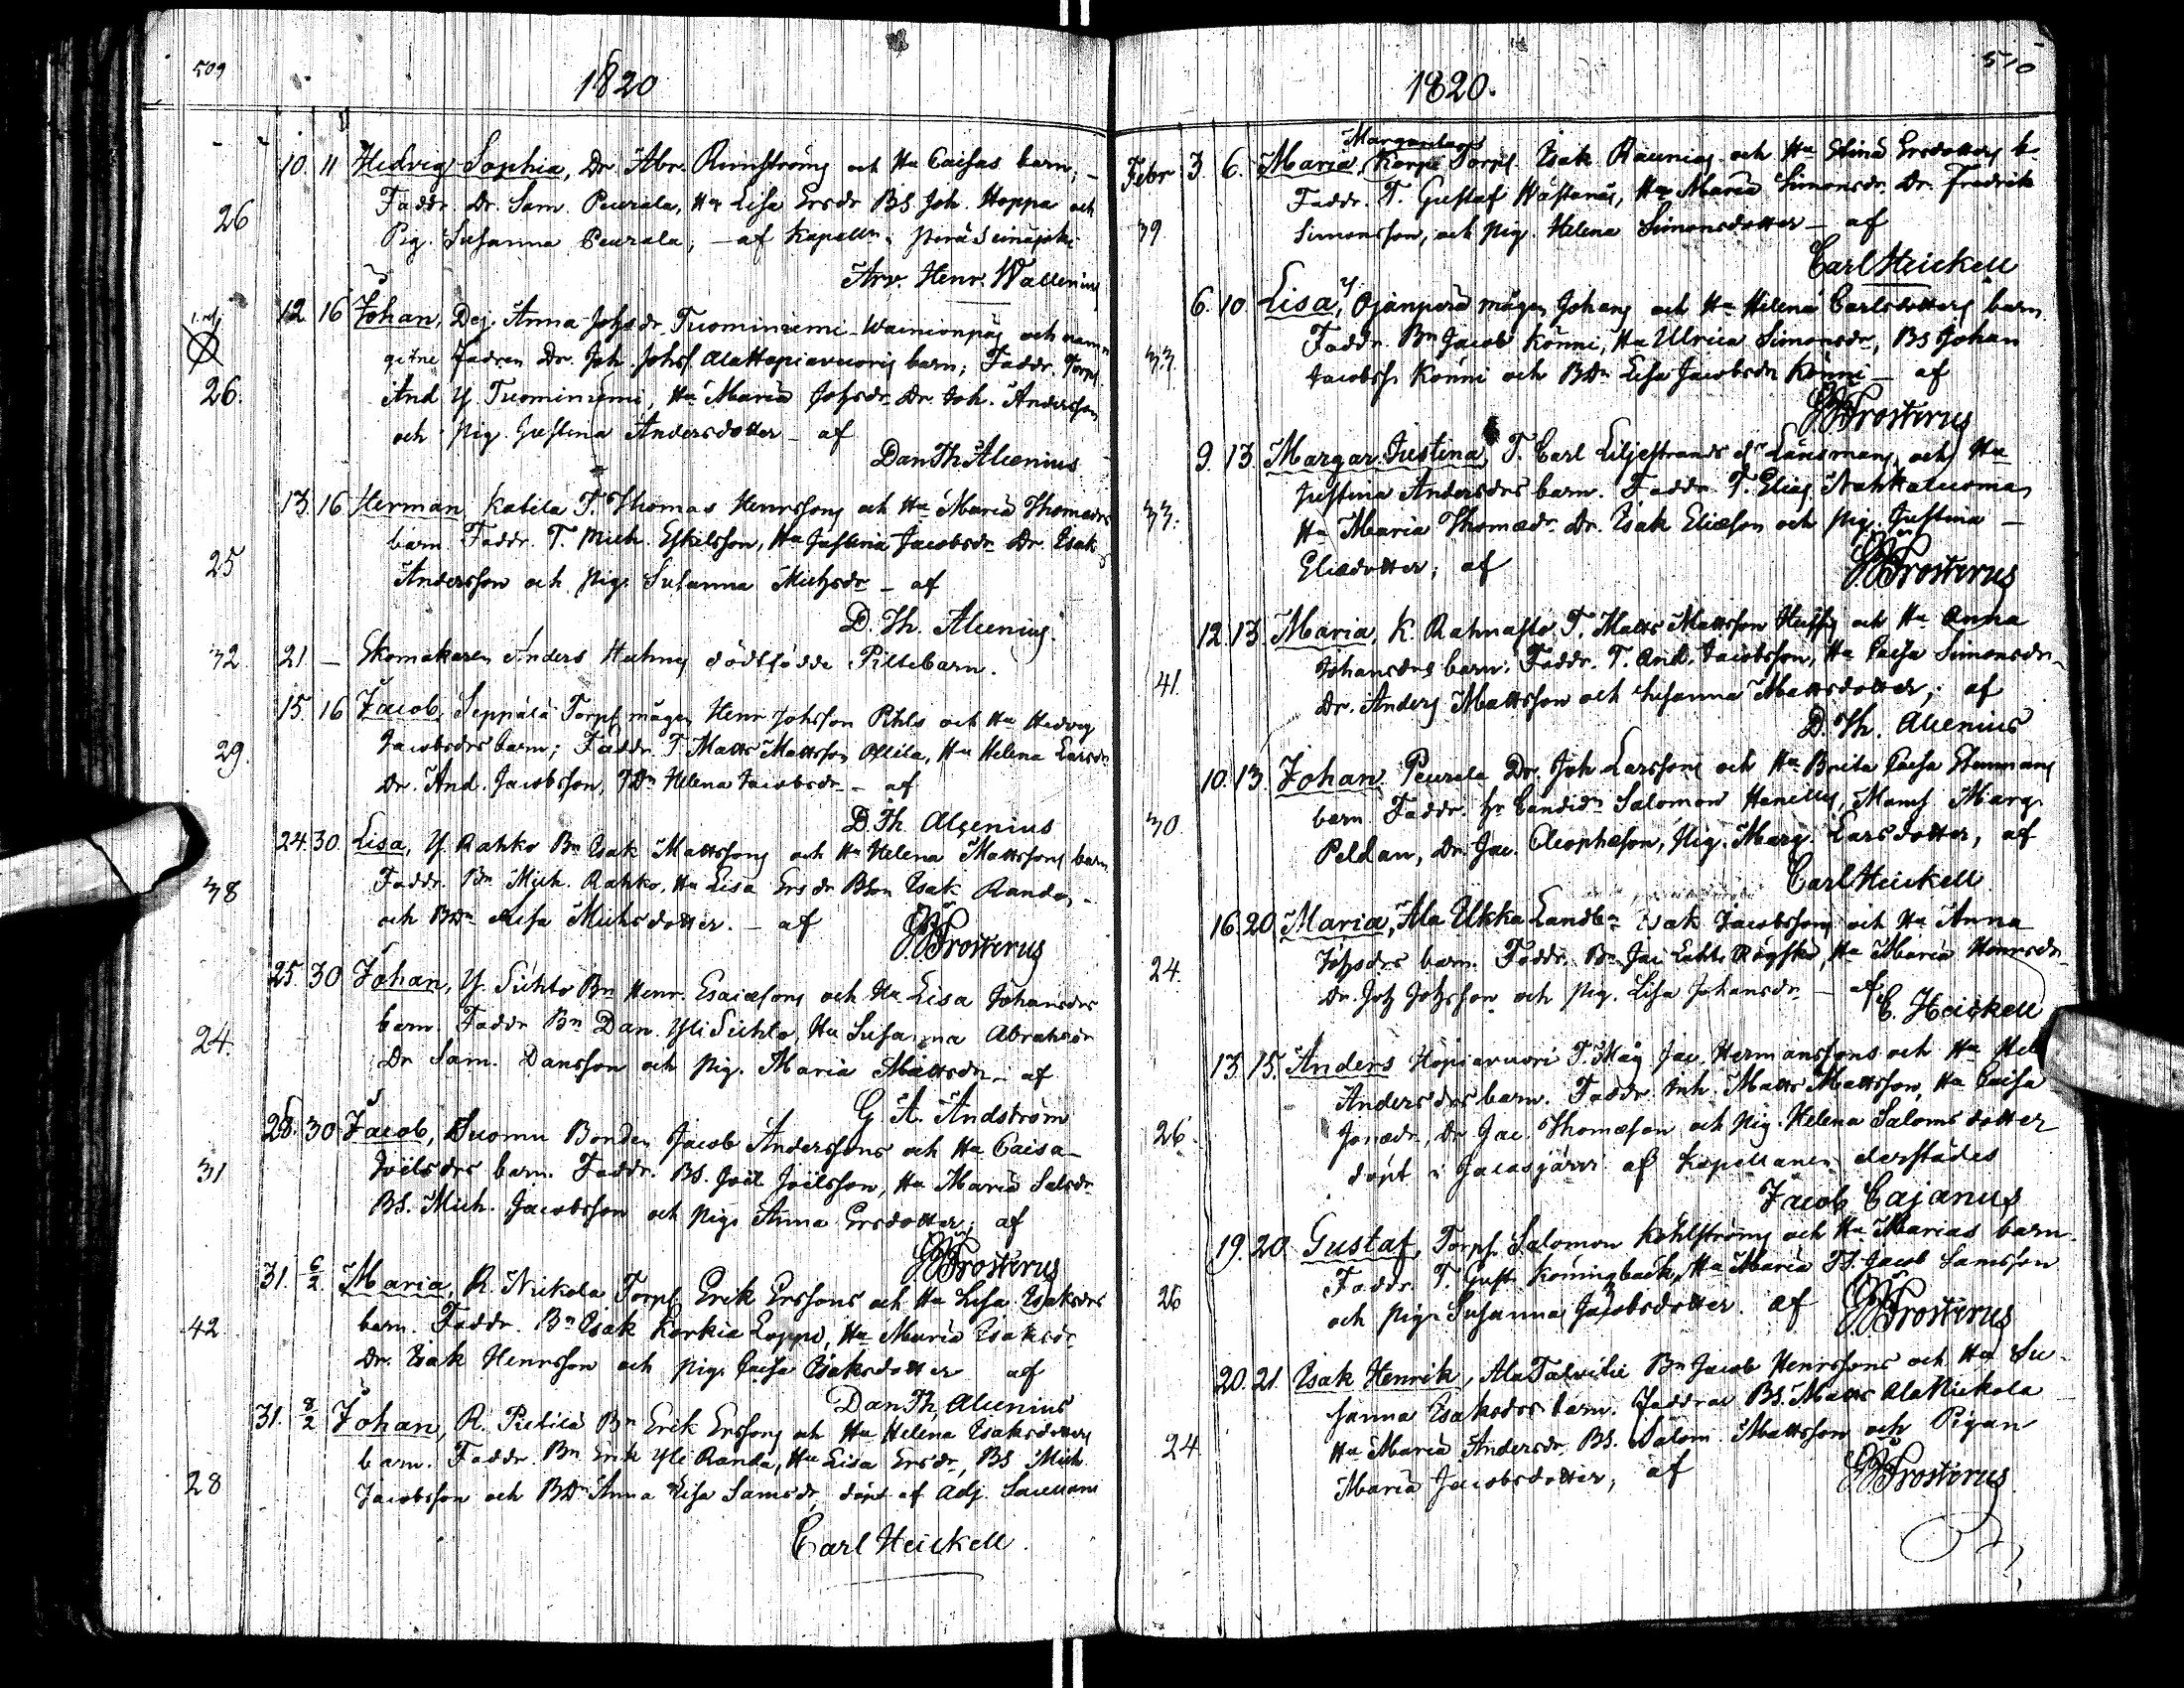 509
1820
10. 11 Hedvig Sophia, Dr. Abr. Rimströms och Hu Caisas barn;
Faddr. Dr. Sam. Peurala, Hu Lisa Ersdr BS Joh. Hoppa och
26
Pig. Susanna Peurala, – af Kapelln i Peräseinäjoki
Arv. Henr. Wallenius
12 16 Johan, Dej. Anna Johsdr Tuominiemi och
Fadren Dr. Joh. Johss. barn; Faddr. Torp.
26.
And Y. Tuominiemi, Hu Maria Johsdr Dr. Joh. Andersson
och Pig. Justina Andersdotter – af
Dan Th Alcenius
13. 16 Herman, Katila T. Thomas Henrssons och Hu Maria Thomædrs
barn. Faddr. T. Mich. Eskilsson, Hu Justina Jacobsdr Dr. Isak
25
Andersson och Pig. Susanna Michsdr – af
D. Th. Alcenius.
32. 21 – Skomakaren Anders dödfödde Piltebarn.
15. 16 Jacob, Seppälä Torp. mågen Henr Johsson och Hu Hedvig
Jacobsdrs barn; Faddr. T. Matts Mattsson Ollila, Hu Helena Larsdr
29.
Dr. And. Jacobsson, TDr Helena Jacobsdr – af
D. Th Alcenius
24. 30. Lisa, Y. Rahko Bn Isak Mattssons och Hu Helena Mattssons barn
38
Faddr. Bn Mich. Rahko, Hu Lisa Ersdr BSon Isak Randa,
och BDr Lisa Michsdotter. – af
Frosterus
25. 30 Johan, Y. Sichto Bn Henr. Esaiæsons och Hu Lisa Johansdrs
barn. Faddr Bn Dan. Yli Sichto, Hu Susanna Abrahsdr
24.
Dr Sam. Dansson och Pig. Maria Mattsdr – af
G. A. Andström
28. 30 Jacob, Suomu Bonden Jacob Anderssons och Hu Caisa
Joëlsdrs barn. Faddr. BS. Joël Joëlsson, Hu Maria Salsdr
31
BS. Mich. Jacobsson och Pig. Anna Ersdotter; af
Frosterus
31. 6/2. Maria, R. Nickola Torp. Erik Erssons och Hu Lisa Isaksdrs
barn. Faddr. Bn Isak Korkia Loppi, Hu Maria Isaksdr
42.
Dr. Isak Henrsson och Pig. Caisa Isaksdotter af
Dan Th. Alcenius
31. 8/2 Johan, R. Pietilä Bn Erik Erssons och Hu Helena Isaksdotters
barn. Faddr. Bn Erik Yli Randa, Hu Lisa Ersdr, BS Mich
28
Jacobsson och BDr Anna Lisa Samsdr, döpt af Adj.
Carl Heickell.
510
1820.
Margareta
Febr 3. 6. Maria, Korpi Torp. Isak Raunios och Hu Stina Ersdotters b.
Faddr. T. Gustaf Wästenäs, Hu Maria Simonsdr. Dr. Fredrik
39.
Simonsson, och Pig. Helena Simonsdotter – af
Carl Heickell
6. 10. Lisa, Y. Ojanperä mågen Johans och Hu Helena Carlsdotters barn
Faddr. Bn Jacob Könni, Hu Ulrica Simonsdr, BS Johan
33.
Jacobss. Könni och BDr Lisa Jacobsdr Könni – af
Frosterus
9. 13. Margar. Justina, T. Carl Liljestrands Länsmans och Hu
Justina Andersdrs barn. Faddr. T. Elias Nahkaluoma,
33.
Hu Maria Thomædr. Dr. Isak Eliæson och Pig. Justina –
Eliædotter; af
Frosterus
12. 13. Maria, K. Rahnasto T. Matts Mattsson och Hu Anna
Johansdrs barn. Faddr. T. And. Jacobsson, Hu Caisa Simonsdr
41.
Dr. Anders Mattsson och Susanna Mattsdotter; af
D. Th. Alcenius
10. 13. Johan. Peurala Dr. Joh Larssons och Hu Brita Caisa
barn. Faddr. Hr Candidn Salomon Hanelles, Mams. Marg.
30.
Peldan, Dr. Jac. Cleophæson, Pig. Marg. Larsdotter, af
Carl Heickell
16. 20. Maria, Ala Ukka Landbn Isak Jacobssons och Hu Anna
Johsdrs barn. Faddr. Bn Jac. Hu Maria Henrsdr
24.
Dr. Joh Johsson och Pig. Lisa Johansdr – af
C. Heickell
13. 15. Anders Hopiavuori T. Måg Jac. Hermanssons och Hu Hel
Andersdrs barn. Faddr. Inh. Matts Mattsson, Hu Caisa
26.
Jonædr, Dr Jac. Thomæson och Pig. Helena Salomsdotter
döpt i Jalasjärvi af Kapellanen derstädes
Jacob Cajanus
19. 20. Gustaf, Torp. Salomon Kihlströms och Hu Marias barn.
Faddr. T. Gust. Köningbäck, Hu Maria TS. Jacob Samsson
26
och Pig. Susanna Jacobsdotter. af
Frosterus
20. 21. Isak Henrik, Ala Talvitie Bn Jacob Henrssons och Hu Su-
sanna Isaksdrs barn. Faddrar BS. Matts Ala Nickola
24.
Hu Maria Andersdr. BS. Salom. Mattsson och Pigan
Maria Jacobsdotter; af
Frosterus